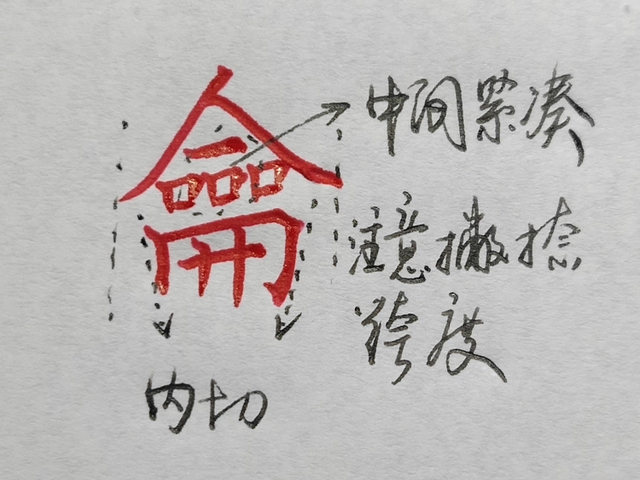 龠
中间紧凑
注意撇捺
跨度
内切